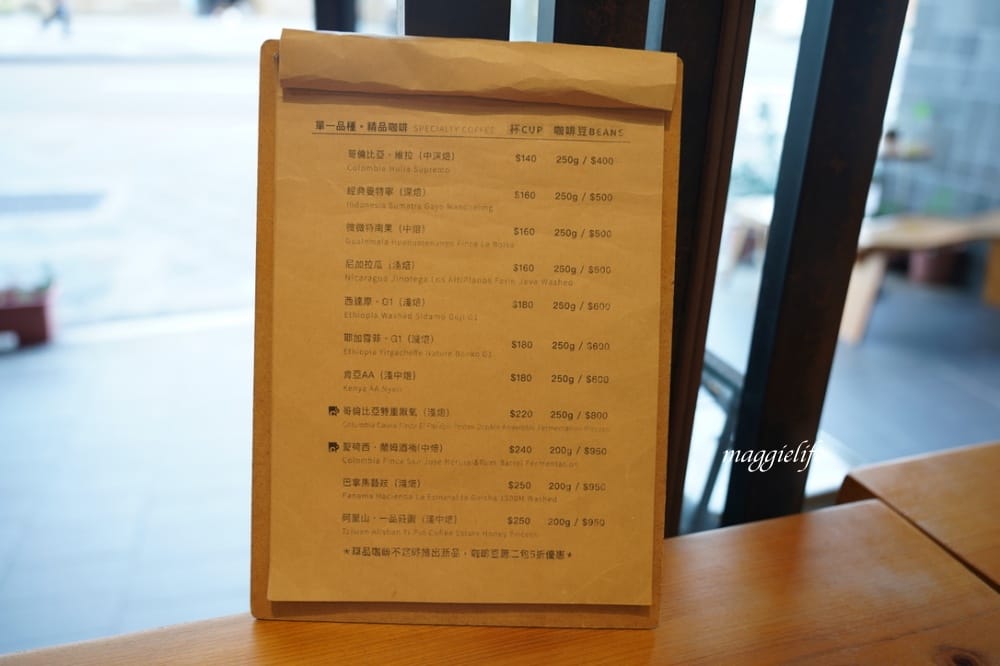 單一品種・精品咖啡 SPECIALTY COFFEE 杯CUP 咖啡豆BEANS
哥倫比亞・維拉（中深焙） $140 250g / $400
Colombia Huila Supremo
經典曼特寧（深焙） $160 250g / $500
Indonesia Sumatra Gayo Mandheling
薇薇特南果（中焙） $160 250g / $500
Guatemala Huehuetenango Finca La Bolsa
尼加拉瓜（淺焙） $160 250g / $500
Nicaragua Jinotega Los Altiplanos Farm Java Washed
西達摩・G1（淺焙） $180 250g / $600
Ethiopia Washed Sidamo Guji G1
耶加雪菲・G1（淺焙） $180 250g / $600
Ethiopia Yirgacheffe Nature Banko G1
肯亞AA（淺中焙） $180 250g / $600
Kenya AA Nyeri
哥倫比亞雙重厭氧（淺焙） $220 250g / $800
Colombia Cauca Finca El Paraiso Double Anaerobic Fermentation Process
聖荷西・蘭姆酒桶(中焙) $240 200g / $950
Colombia Finca San Jose Natural&Rum Barrel Fermentation
巴拿馬藝妓（淺焙） $250 200g / $950
Panama Hacienda La Esmeralda Geisha 1500M Washed
阿里山・一品莊園（淺中焙） $250 200g / $950
Taiwan Alishan Yi Pin Coffee Estate Honey Process
★單品咖啡不定時推出新品，咖啡豆買二包9折優惠★
maggielif